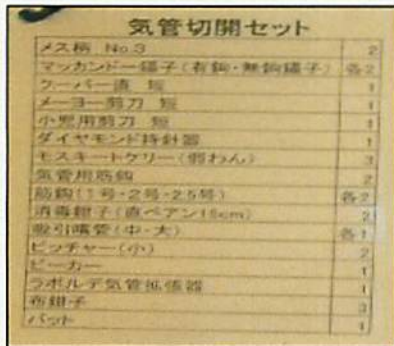 気管切開セット
メス柄 No.3 2
マッカンドー鑷子(有鈎・無鈎鑷子) 各2
クーパー直 短 1
メーヨー剪刀 短 1
小児用剪刀 短 1
ダイヤモンド持針器 1
モスキートケリー(弱わん) 3
気管用筋鈎 2
筋鈎(1号・2号・2.5号) 各2
消毒鉗子(直ペアン16cm) 2
吸引嘴管(中・大) 各1
ピッチャー(小) 2
ビーカー 1
ラボルデ気管拡張器 1
布鉗子 3
バット 1